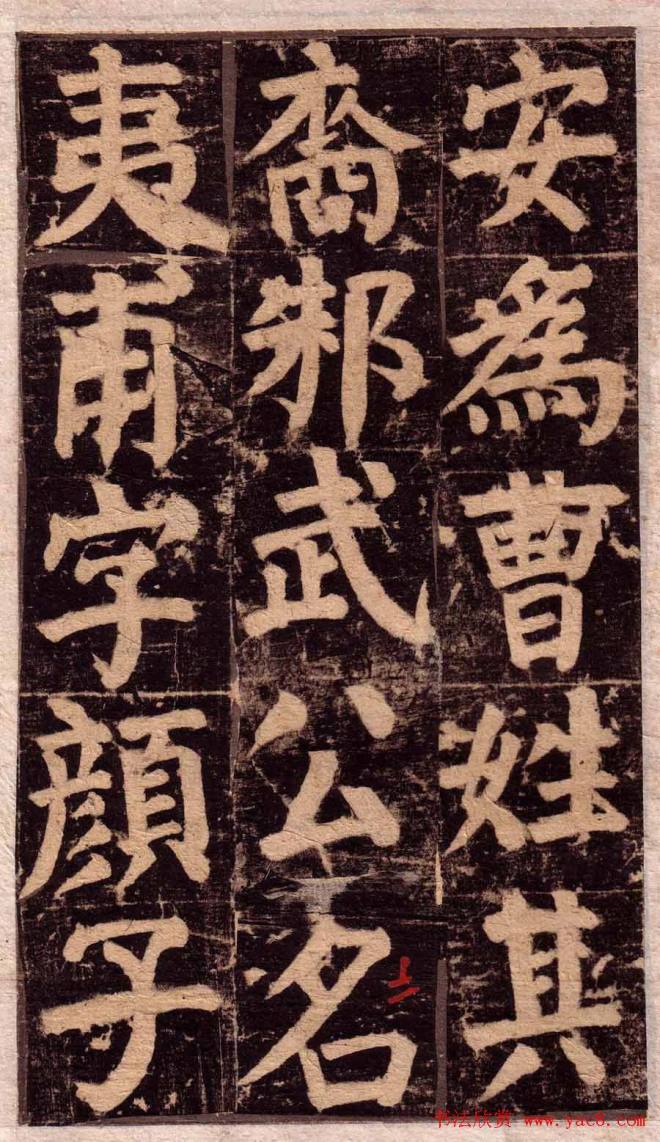 安為曹姓其
裔邾武公名
夷甫字顔子
书法欣赏 www.yac8.com